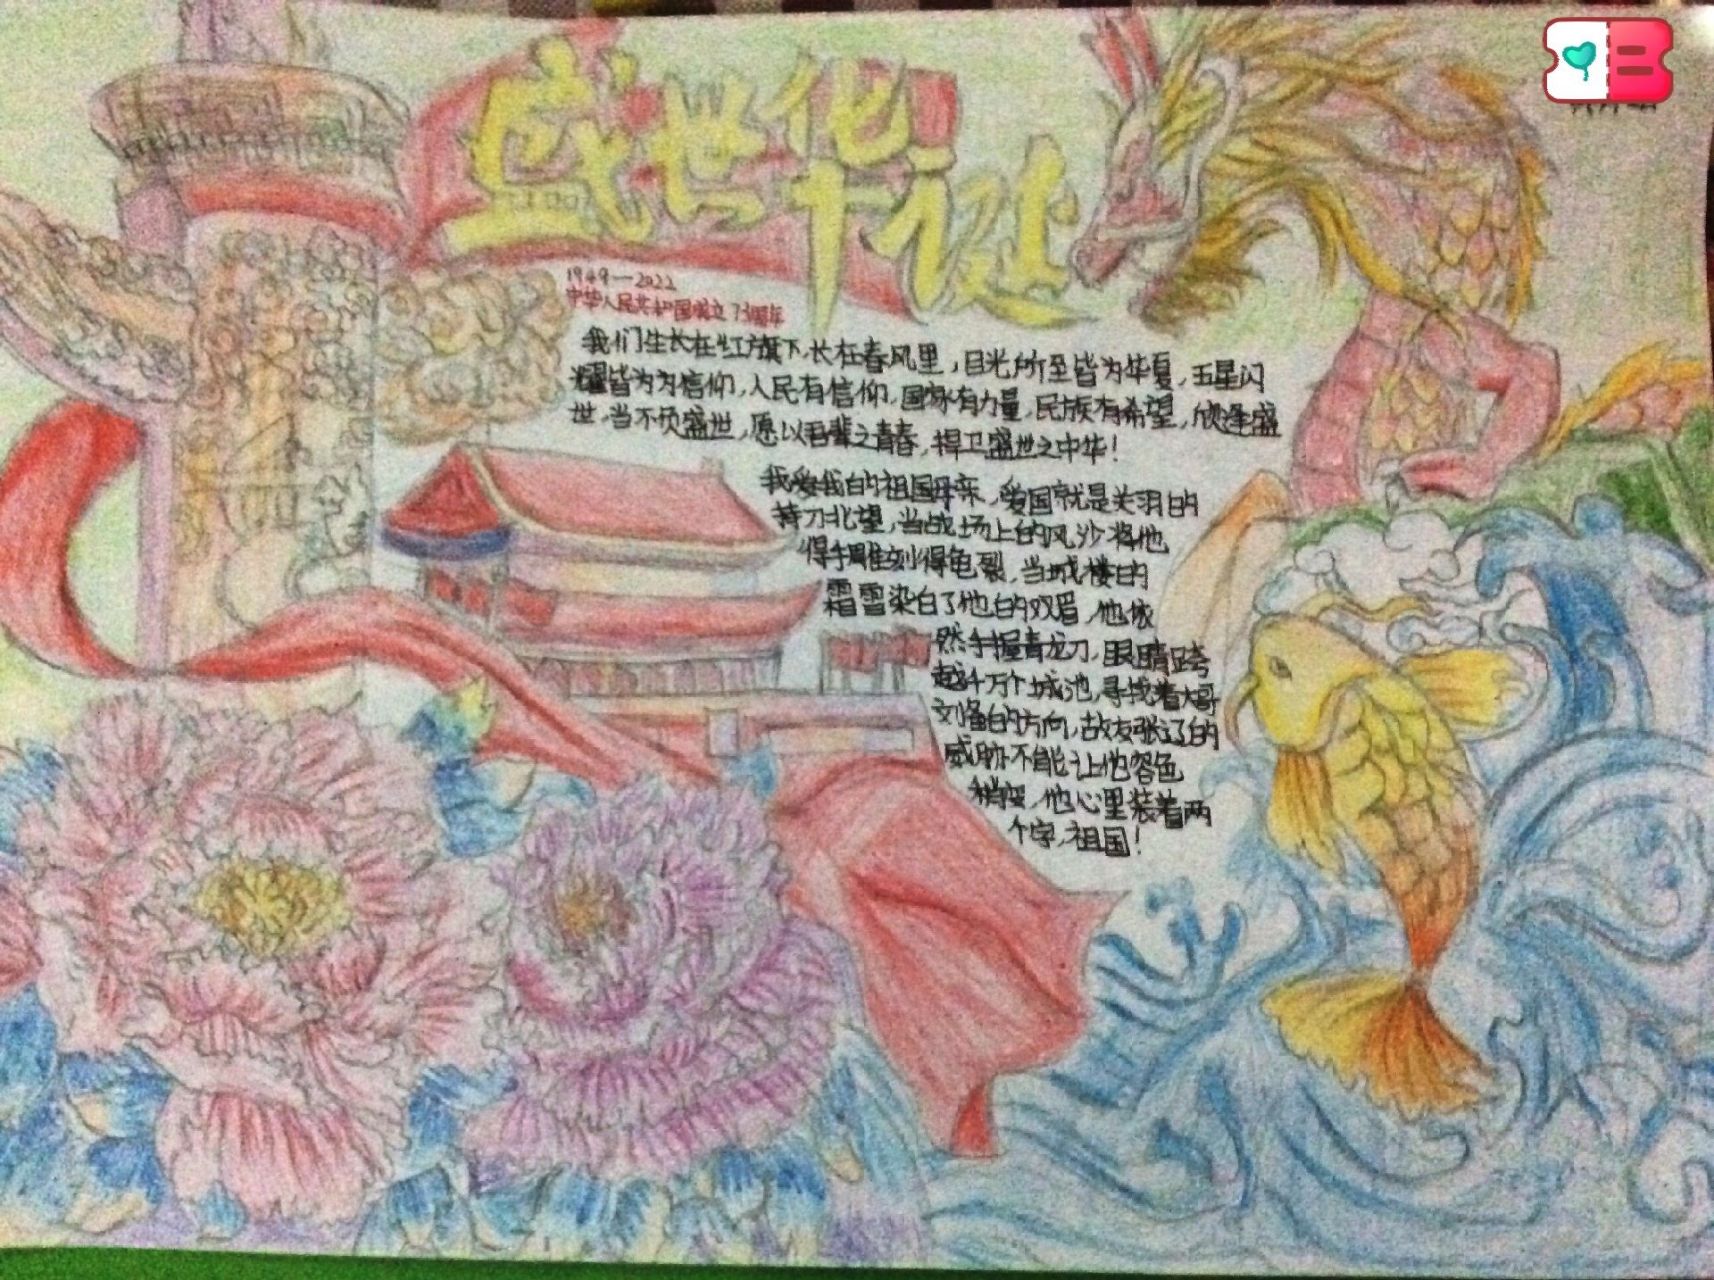 盛世华诞
1949—2022
中华人民共和国成立73周年
我们生长在红旗下,长在春风里,目光所至皆为华夏,五星闪
耀皆为为信仰,人民有信仰,国家有力量,民族有希望,欣逢盛
世,当不负盛世,愿以吾辈之青春,捍卫盛世之中华!
我爱我的祖国母亲,爱国就是关羽的
持刀北望,当战场上的风沙将他
得手雕刻得龟裂,当城楼的
霜雪染白了他的双眉,他依
然手握青龙刀,眼睛跨
越千万个城池,寻找着大哥
刘备的方向,故友张辽的
威胁不能让他容色
稍变,他心里装着两
个字,祖国!